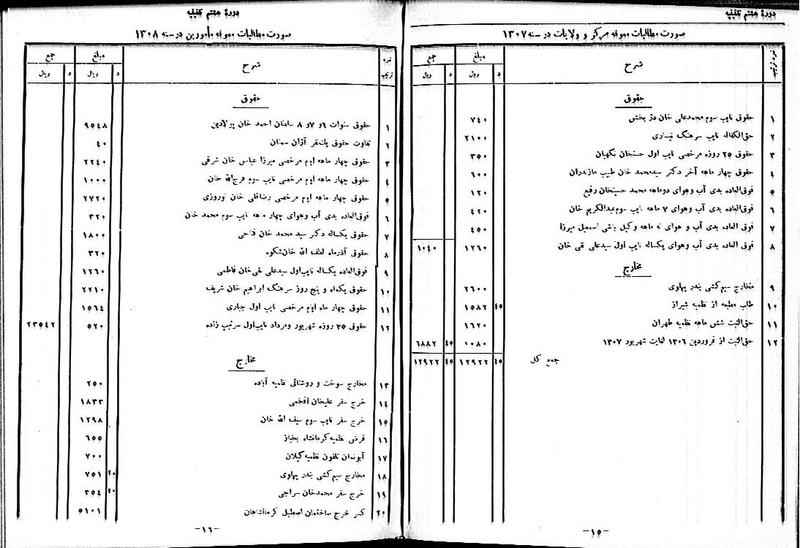 دورهٔ هشتم تقنینیه
صورت مطالبات معوقه مرکز و ولایات در سنه ۱۳۰۷
نمره ترتیب شرح مبلغ جمع
د ریال د ریال
حقوق
۱ حقوق نایب سوم محمدعلی خان دژ بخش ۷۴۰
۲ حق‌الکفاله نایب سرهنگ نیساری ۲۱۰۰
۳ حقوق ۲۵ روزه مرخصی نایب اول حسنخان نگهبان ۳۵۰
۴ حقوق چهار ماهه آخر دکتر سیدمحمد خان طبیب مازندران ۶۰۰
۵ فوق‌العاده بدی آب و هوای دوماهه محمد حسینخان رفیع ۱۲۰
۶ فوق‌العاده بدی آب و هوای ۷ ماهه نایب سوم عبدالکریم خان ۴۲۰
۷ فوق‌العاده بدی آب و هوای ماهه وکیل باشی اسمعیل میرزا ۴۵۰
۸ فوق العاده بدی آب و هوای یکساله نایب اول سیدعلی نقی خان ۱۲۶۰ ۱۰۴۰
مخارج
۹ مخارج سیم‌کشی بندر پهلوی ۲۶۰۰
۱۰ طلب مطبعه از نظمیه شیراز ۴۵ ۱۵۸۲
۱۱ حق‌الثبت شش ماهه نظمیه طهران ۱۶۲۰
۱۲ حق‌الثبت از فروردین ۱۳۰۶ لغایت شهریور ۱۳۰۷ ۱۰۸۰ ۴۵ ۶۸۸۲
جمع کل ۴۵ ۱۲۹۲۲ ۴۵ ۱۲۹۲۲
-۱۵-
دورهٔ هشتم تقنینیه
صورت مطالبات معوقه مأمورین در سنه ۱۳۰۸
نمره ترتیب شرح مبلغ جمع
د ریال د ریال
حقوق
۱ حقوق سنوات ۶ و ۷ و ۸ سلطان احمد خان پولادین ۹۵۴۸
۲ تفاوت حقوق یک‌نفر آژان سمنان ۴۰
۳ حقوق چهار ماهه ایام مرخصی میرزا عباس خان شرقی ۲۲۴۰
۴ حقوق چهار ماهه ایام مرخصی نایب سوم فرج‌الله خان ۱۰۰۰
۵ حقوق چهار ماهه ایام مرخصی رضاقلی خان نوروزی ۲۷۲۰
۶ فوق‌العاده بدی آب و هوای چهار ماهه نایب سوم محمد خان ۳۲۰
۷ حقوق یکساله دکتر سید محمد خان فتاحی ۱۸۰۰
۸ حقوق آذرماه لطف الله خان شکوه ۳۲۰
۹ فوق‌العاده یکساله نایب‌اول سیدعلی نقی‌خان فاطمی ۱۲۶۰
۱۰ حقوق یکماه و پنج روز سرهنگ ابراهیم خان شریف ۲۲۱۰
۱۱ حقوق چهار ماه ایام مرخصی نایب اول جباری ۱۵۶۴
۱۲ حقوق ۲۵ روزه شهریور و مرداد نایب‌اول سرتیپ زاده ۵۲۰ ۲۳۵۴۲
مخارج
۱۳ مخارج سوخت و روشنائی نظمیه آباده ۲۵۰
۱۴ خرج سفر علیخان افخمی ۱۸۳۳
۱۵ خرج سفر نایب سوم سیف الله خان ۱۲۹۸
۱۶ قرض نظمیه کرمانشاه بخباز ۶۵۵
۱۷ آبونمان تلفون نظمیه گیلان ۷۰۰
۱۸ مخارج سیم‌کشی بندر پهلوی ۲۰ ۷۵۱
۱۹ خرج سفر محمدخان سراجی ۲۰ ۳۵۴
۲۰ کسر خرج ساختمان اصطبل کرمانشاهان ۵۱۰۱
-۱۶-